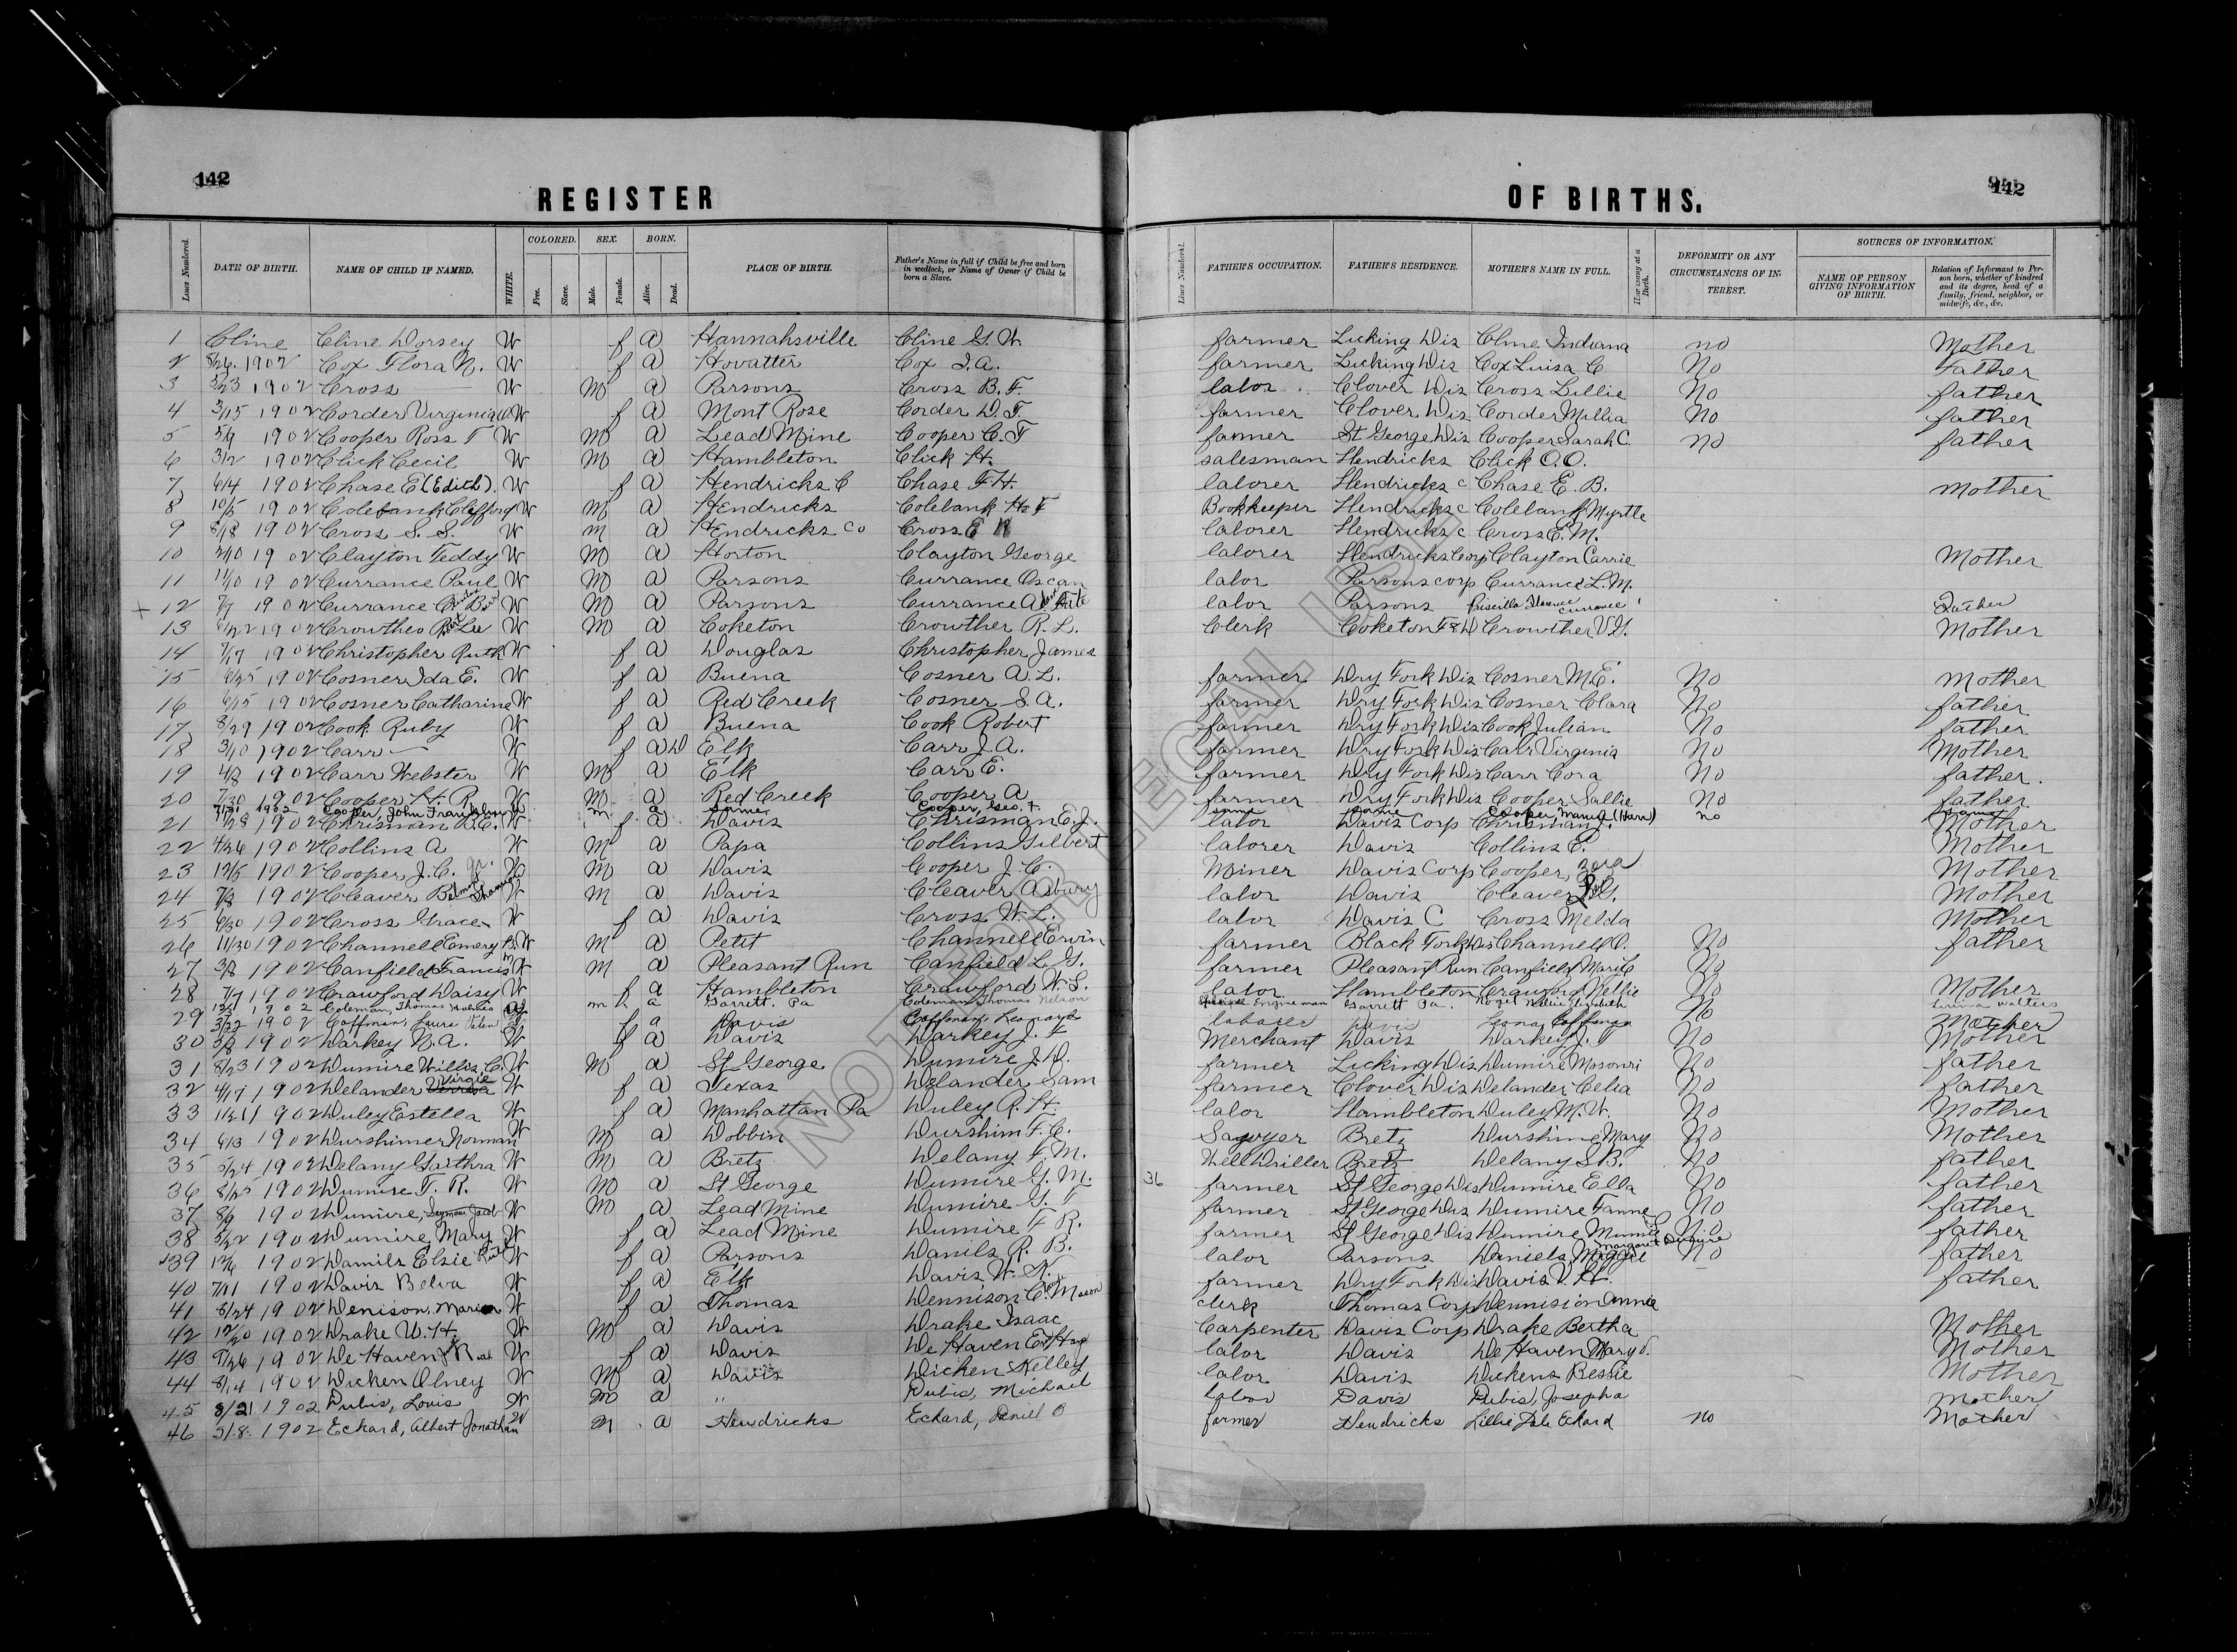 142
142
REGISTER OF BIRTHS.
Lines Numbered. DATE OF BIRTH. NAME OF CHILD IF NAMED. WHITE. COLORED. Free. Slave. SEX. Male. Female. BORN. Alive. Dead. PLACE OF BIRTH. Father's Name in full if Child be free and born in wedlock, or Name of Owner if Child be born a Slave.
Lines Numbered. FATHER'S OCCUPATION. FATHER'S RESIDENCE. MOTHER'S NAME IN FULL. How many at a Birth. DEFORMITY OR ANY CIRCUMSTANCES OF INTEREST. SOURCES OF INFORMATION. NAME OF PERSON GIVING INFORMATION OF BIRTH. Relation of Informant to Person born, whether of kindred and its degree, head of a family, friend, neighbor, or midwife, &c., &c.
1 Cline Cline Dorsey W f a Hannahsville Cline G. W. farmer Licking Dis Cline Indiana no Mother
2 1902 Cox Flora N. W f a Hovatter Cox I. A. farmer Licking Dis Cox Luisa C No Father
3 3/23 1902 Cross W M a Parsons Cross B. F. labor Clover Dis Cross Lillie No father
4 3/15 1902 Corder Virginia W f a Mont Rose Corder D. F. farmer Clover Dis Corder Millia No father
5 5/9 1902 Cooper Ross F W M a Lead Mine Cooper C. F farmer St George Dis Cooper Sarah C. no father
6 3/2 1902 Click Cecil W M a Hambleton Click H. salesman Hendricks Click O. O.
7 6/4 1902 Chase E (Edith) W f a Hendricks C Chase F. H. laborer Hendricks C Chase E. B. Mother
8 10/5 1902 Colebank Clifford W M a Hendricks Colebank H F Bookkeeper Hendricks C Colebank Myrtle
9 8/18 1902 Cross S. S. W m a Hendricks Co Cross E laborer Hendricks C Cross E. M.
10 1902 Clayton Teddy W M a Horton Clayton George laborer Hendricks Corp Clayton Carrie Mother
11 11/10 1902 Currance Paul W M a Parsons Currance Oscar labor Parsons corp Currance L. M.
+ 12 7/7 1902 Currance W M a Parsons Currance A labor Parsons Priscilla Florence Currance Father
13 1902 Crowther R Lee W M a Coketon Crowther R. L. Clerk Coketon Crowther V. G. Mother
14 7/17 1902 Christopher Ruth W f a Douglas Christopher James
15 6/25 1902 Cosner Ida E. W f a Buena Cosner A. L. farmer Dry Fork Dis Cosner M. E. No Mother
16 6/15 1902 Cosner Catharine W f a Red Creek Cosner S. A. farmer Dry Fork Dis Cosner Clara No father
17 8/29 1902 Cook Ruby W f a Buena Cook Robert farmer Dry Fork Dis Cook Julian No father
18 3/10 1902 Carr W f a D Elk Carr J. A. farmer Dry Fork Dis Carr Virginia No Mother
19 4/2 1902 Carr Webster W M a Elk Carr E. farmer Dry Fork Dis Carr Cora No father.
20 7/30 1902 Cooper H. R. W M a Red Creek Cooper A farmer Dry Fork Dis Cooper Sallie No father
1902 Cooper, John Franklin W m a same Cooper, Geo. F. same same Cooper, Mary J (Harr) no same
21 1902 Chrisman W f a Davis Chrisman E. J. labor Davis Corp Chrisman J. Mother
22 4/26 1902 Collins A W M a Papa Collins Gilbert laborer Davis Collins C. Mother
23 12/5 1902 Cooper, J. C. Jr. W M a Davis Cooper J. C. Miner Davis Corp Cooper, Zora Mother
24 7/2 1902 Cleaver W M a Davis Cleaver Asbury labor Davis Cleaver Mother
25 6/30 1902 Cross Grace W f a Davis Cross W. L. labor Davis C Cross Melda Mother
26 11/30 1902 Channell Emery B. W M a Petit Channell Ervin farmer Black Fork Dis Channell C. No father
27 3/8 1902 Canfield Francis M W M a Pleasant Run Canfield L. G. farmer Pleasant Run Canfield Mary C No
28 7/7 1902 Crawford Daisy W f a Hambleton Crawford W. S. labor Hambleton Crawford Nellie No Mother
1902 Coleman, Thomas W m a Garrett, Pa Coleman, Thomas Nelson Engineman Garrett Pa. Nellie Elizabeth No
29 3/22 1902 Coffman, Laura W f a Davis Coffman, Leonard laborer Davis Leona Coffman Mother
30 1902 Darkey N. A. W f a Davis Darkey J. F Merchant Davis Darkey J. F No Mother
31 8/23 1902 Dumire Willis C. W M a St George Dumire J. D. farmer Licking Dis Dumire Mosouri No father
32 4/17 1902 Delander Virgie W f a Texas Delander Sam farmer Clover Dis Delander Celia No father
33 1902 Duley Estella W f a Manhattan Pa Duley R. H. labor Hambleton Duley M. W. No Mother
34 6/13 1902 Durshimer Norman W M a Dobbin Durshim F. C. Sawyer Bretz Durshime Mary No Mother
35 5/24 1902 Delany Gaithra W M a Bretz Delany F. M. Well Driller Bretz Delany S. B. No father
36 8/25 1902 Dumire T. R. W M a St George Dumire G. M. 36 farmer St George Dis Dumire Ella No father
37 8/9 1902 Dumire, Seymour Jacob W M a Lead Mine Dumire G. F farmer St George Dis Dumire Fanne No father
38 5/22 1902 Dumire, Mary W f a Lead Mine Dumire F R. farmer St George Dis Dumire Minnie No father
39 12/6 1902 Damils Elsie Ruth W f a Parsons Danils R. B. labor Parsons Daniels Maggie Margaret Dumire No father
40 7/11 1902 Davis Belva W f a Elk Davis W. K. farmer Dry Fork Dis Davis V. H. father
41 8/24 1902 Denison, Marion W f a Thomas Dennison C. Mason clerk Thomas Corp Dennision Annie
42 12/20 1902 Drake W. H. W M a Davis Drake Isaac Carpenter Davis Corp Drake Bertha Mother
43 1902 De Haven W f a Davis De Haven labor Davis De Haven Mary Mother
44 8/14 1902 Dicken Olney W M a Davis Dicken Kelley labor Davis Dickens Bessie Mother
45 8/21 1902 Dubis, Louis W M a " Dubis, Michael labor Davis Dubis, Josepha Mother
46 1902 Eckard, Albert Jonathan W M a Hendricks Eckard, Daniel B farmer Hendricks Lillie Eckard no Mother
NOT FOR LEGAL USE